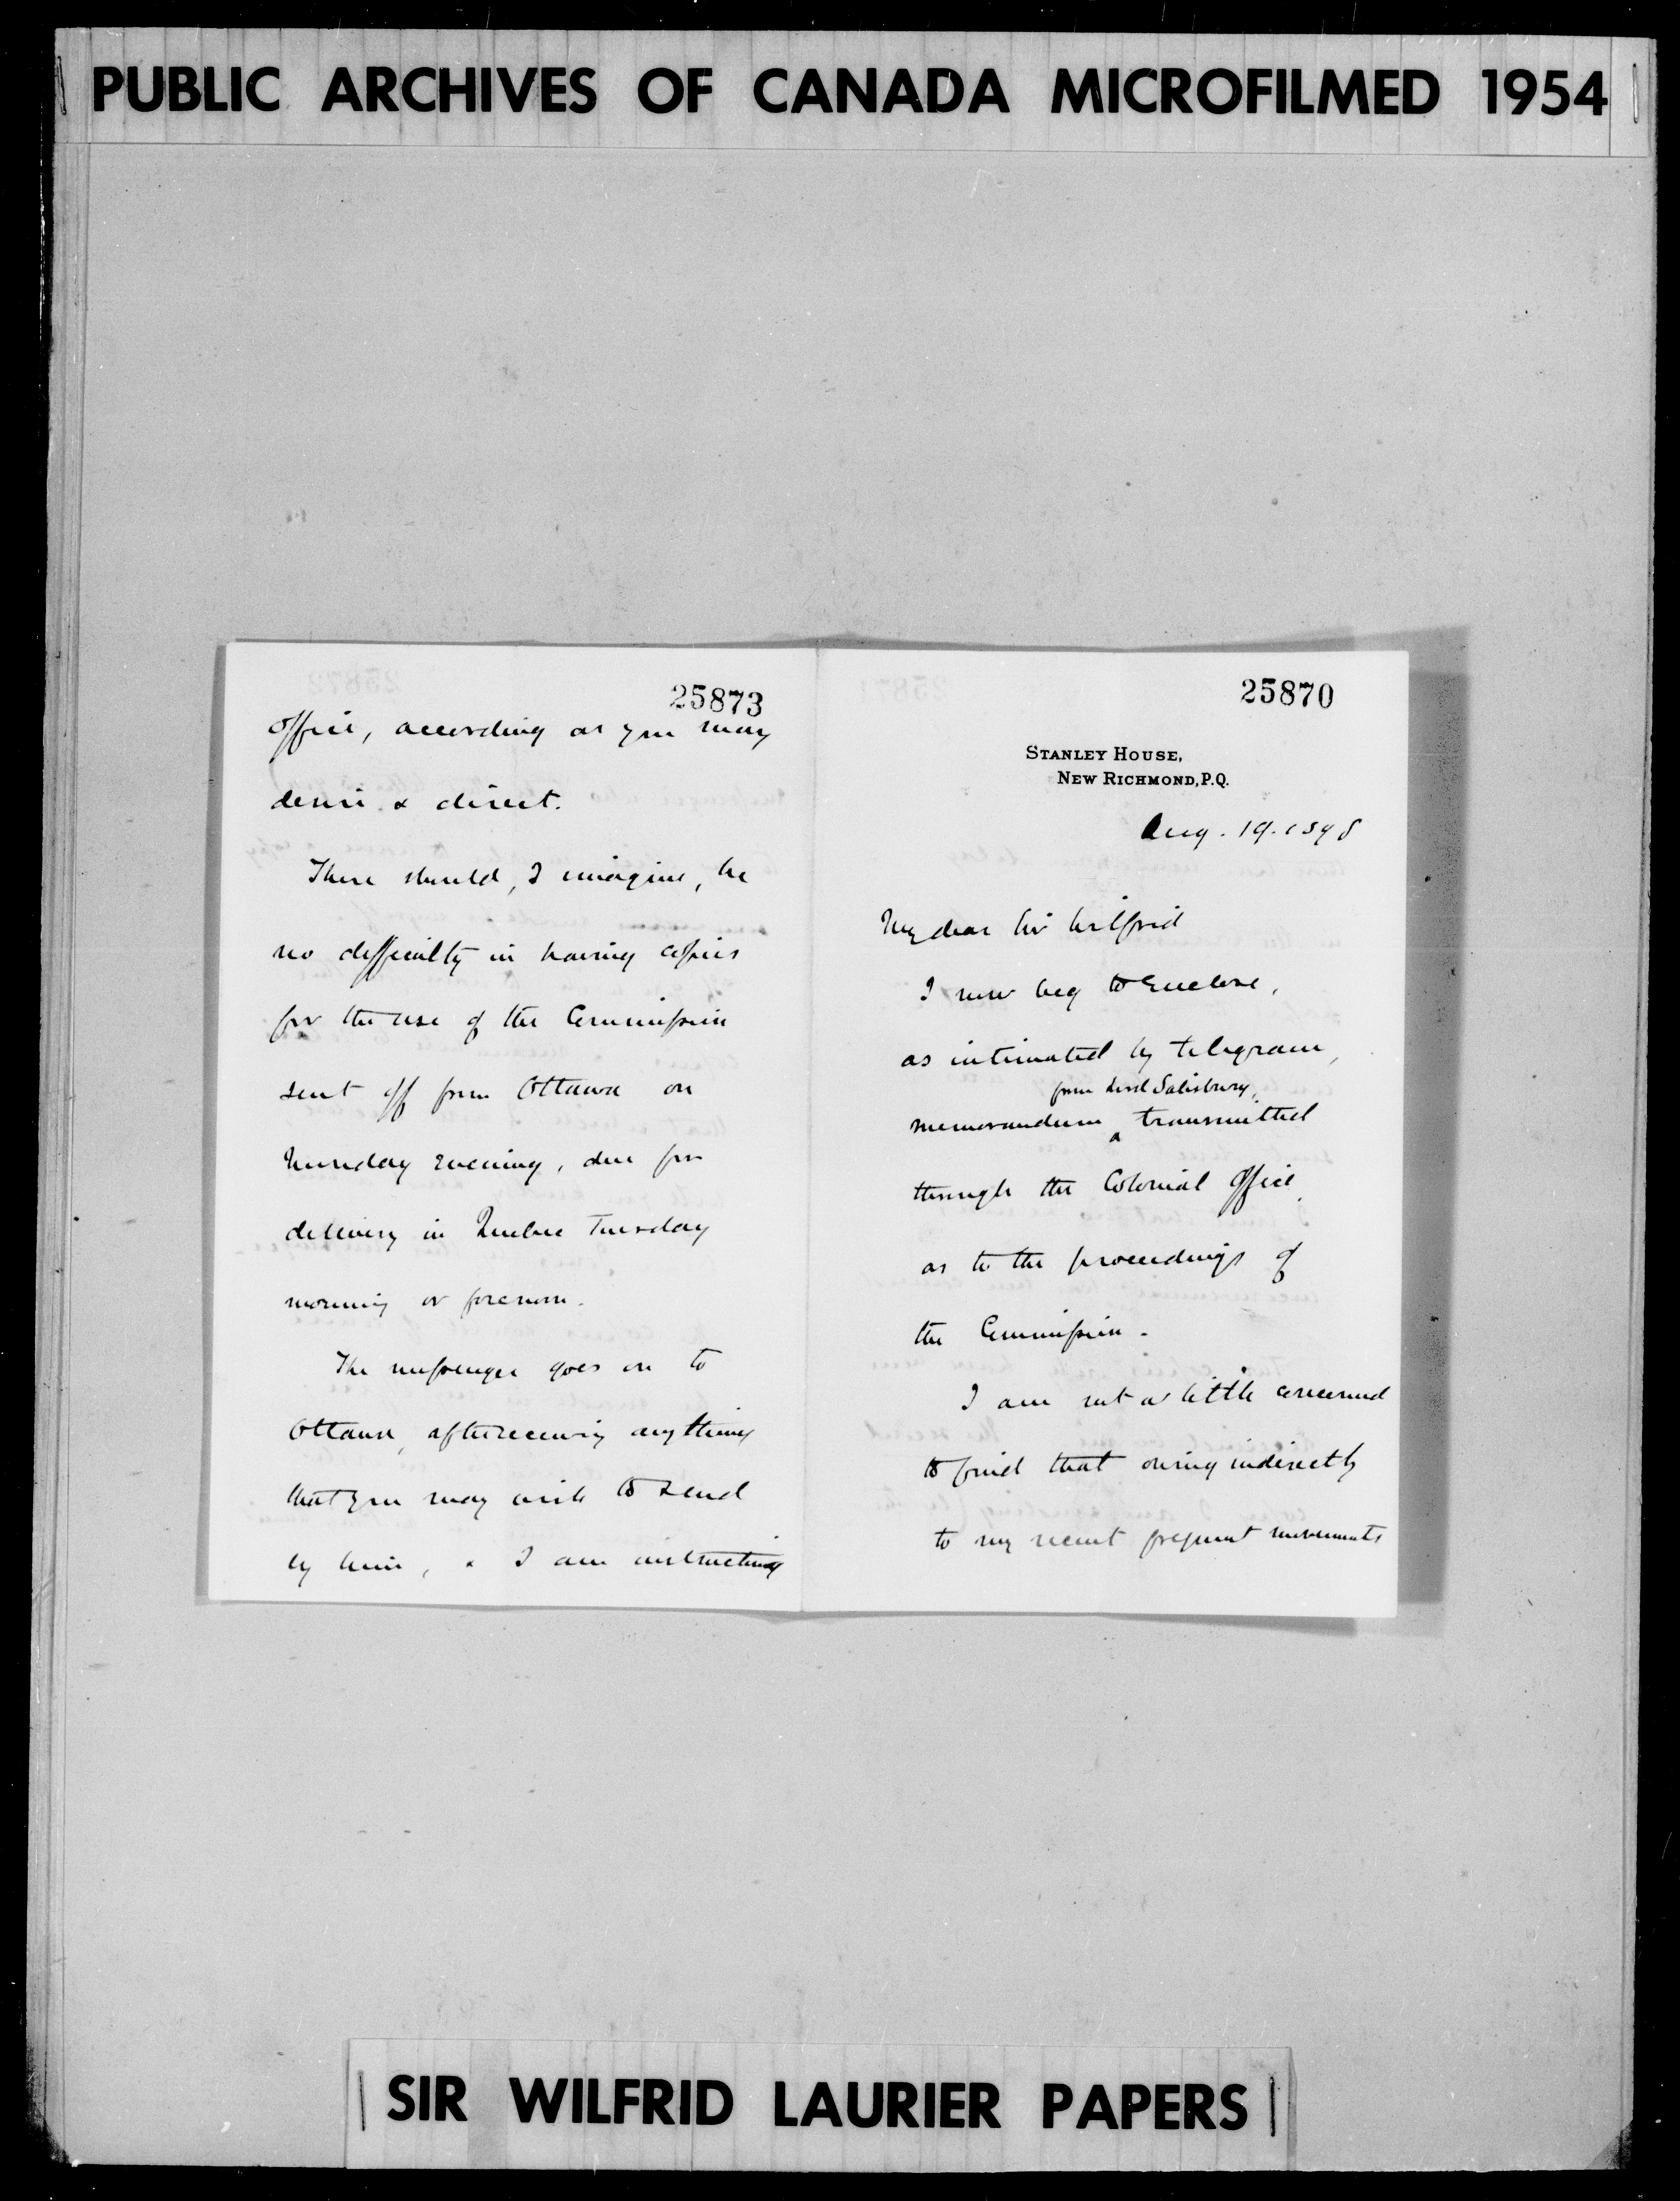 PUBLIC ARCHIVES OF CANADA MICROFILMED 1954
25873
office, according as you may
desire & direct.
There should, I imagine, be
no difficulty in having copies
for the use of the Commission
sent off from Ottawa on
Monday evening, due for
delivery in Quebec Tuesday
morning or forenoon.
The messenger goes on to
Ottawa, after receiving anything
that you may wish to send
by him, & I am instructing
25870
STANLEY HOUSE,
NEW RICHMOND, P.Q.
Aug. 19. 1898
My dear Sir Wilfrid
I now beg to enclose,
as intimated by telegram,
from Lord Salisbury,
memorandum ^ transmitted
through the Colonial Office,
as to the proceedings of
the Commission.
I am not a little concerned
to find that owing indirectly
to my recent frequent movements
SIR WILFRID LAURIER PAPERS